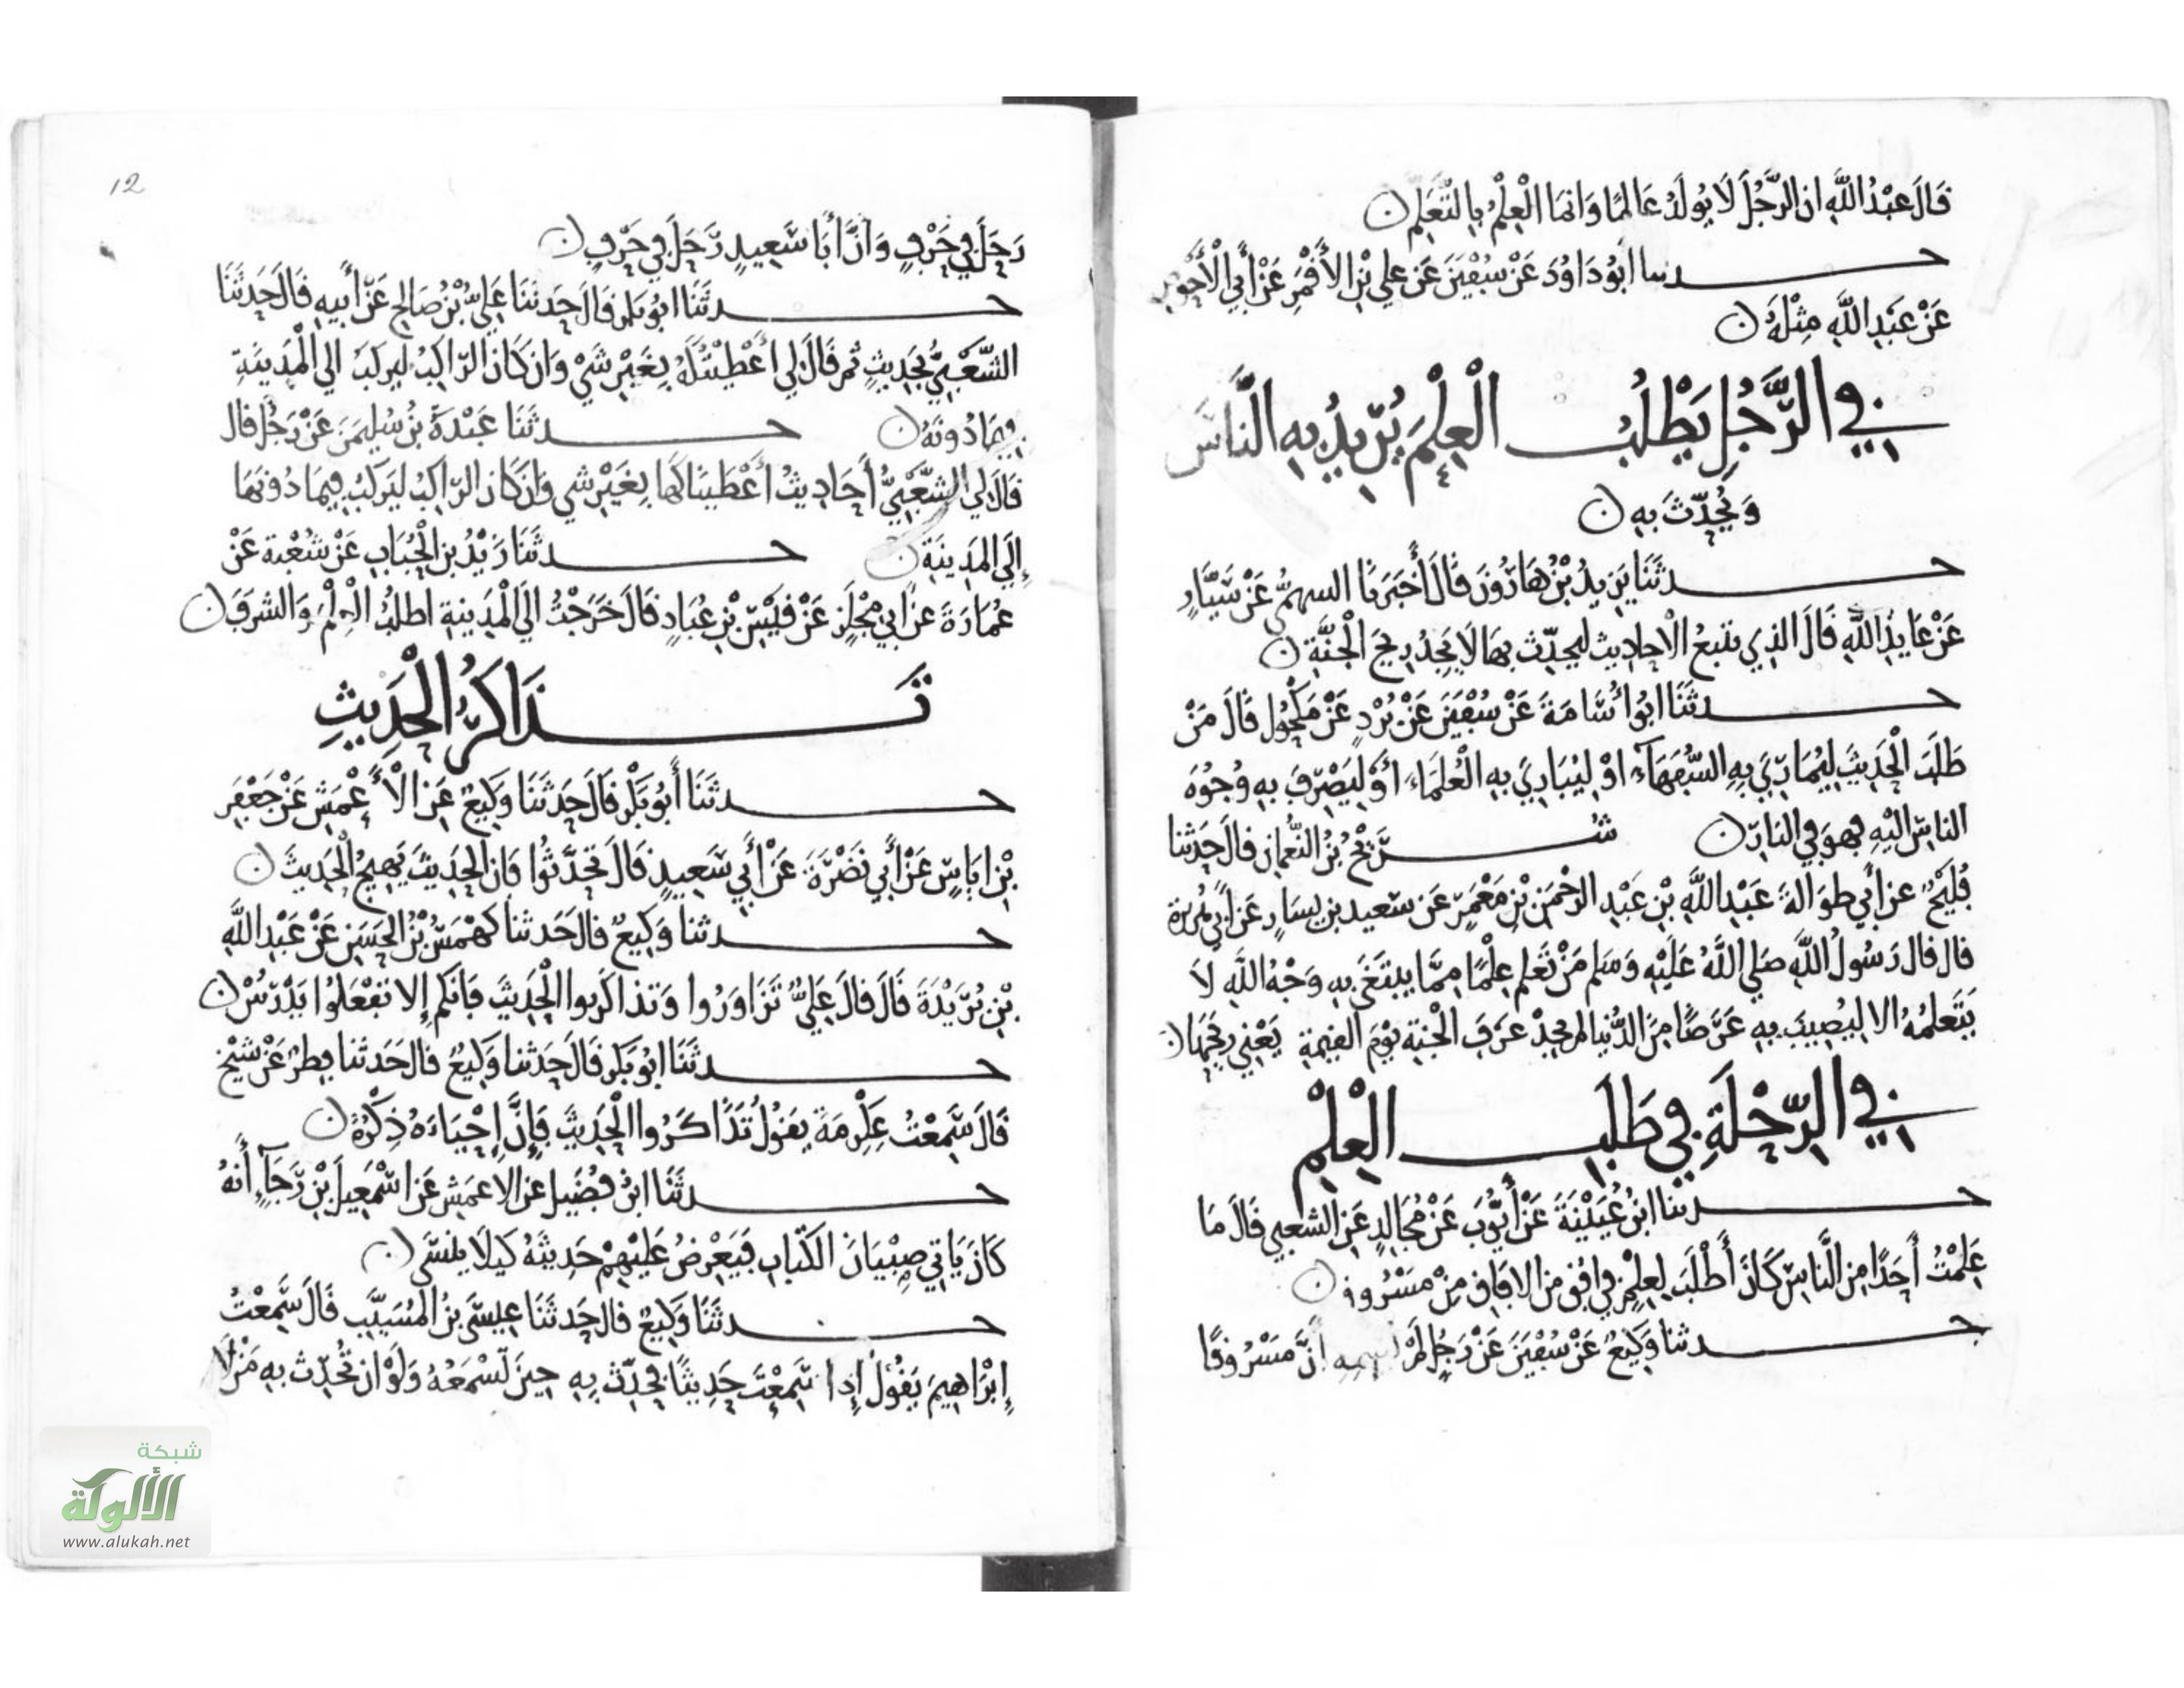 قَالَ عَبْدُ اللَّهِ ان الرَّجُلَ لَا يُولَدُ عَالِمًا وَانما الْعِلْمُ بِالتَّعَلُّمِ
حدثنا ابُو دَاوُدَ عَنْ سُفْيَنَ عَن علي بْنِ الأَقْمَرِ عَنْ أَبِي الْأَحْوَصِ
عَنْ عَبْدِ اللَّهِ مِثْلَهُ
في الرَّجُلِ يَطْلُبُ الْعِلْمَ يُرِيدُ بِهِ النَّاسَ
وَيُحَدِّثَ بِهِ
حدثَنَا يَزِيدُ بْنُ هَارُونَ قَالَ أَخْبَرَنَا السهمي عَنْ سَيَّارٍ
عَنْ عَايِذِ اللَّهِ قَالَ الذِي يتتبعُ الْاحادِيث ليحدِّث بِهَا لَا يَجِدُ رِيحَ الْجَنَّةِ
حدثَنَا ابُو أُسَامَةَ عَنْ سُفْيَنَ عَنْ بُرْدٍ عَنْ مَكْحُولٍ قَالَ مَنْ
طَلَبَ الْحَدِيثَ لِيُمَارِيَ بِهِ السُّفَهَآءَ اوْ لِيُبَارِيَ بِهِ الْعُلَمَاءَ أَوْ لِيَصْرِفَ بِهِ وُجُوهَ
الناسِ الَيْهِ فهوَ فِي النارِ شُرَيْحُ بْنُ النُّعمانِ قالَ حَدثنا
فُلَيْحٌ عن أبي طوَالةَ عَبْدِ اللَّهِ بْنِ عَبْدِ الرحْمَنِ بْنِ مَعْمَرٍ عَن سَعيد بن يسَارٍ عَن أبي هريرة
قال قال رَسُولُ اللَّهِ صَلى اللَّهُ عَلَيْهِ وَسَلم مَنْ تَعَلم عِلْمًا مِمَّا يبتَغَى بِهِ وَجْهُ اللَّهِ لَا
يَتَعَلمُهُ الا ليُصِيبَ بِهِ عَرَضًا مِنَ الدُّنيا لم يجدْ عَرَفَ الْجَنةِ يَوْمَ القيمةِ يَعْنِي رِيحَهَا
في الرِّحْلَةِ في طَلَبِ الْعِلْمِ
حدثنا ابنُ عُيَيْنَةَ عَنْ أَيُّوبَ عَنْ مُجَالِدٍ عَنِ الشعبِي قَالَ مَا
عَلِمْتُ أَحَدًا مِنَ النَّاسِ كَانَ أَطْلَبَ لِعِلْمٍ فِي افُقٍ مِنَ الافَاقِ مِنْ مَسْرُوقٍ
حدثنا وَكِيعٌ عَنْ سُفْيَنَ عَنْ رَجُلٍ لَمْ يسمه أَنَّ مَسْرُوقًا
12
رَحَلَ فِي حَرْفٍ وَأَنَّ أَبَا سَعِيدٍ رَحَلَ فِي حَرْفٍ
حدثَنَا ابُو بَكْرٍ قَالَ حَدثَنَا عَلِيُّ بْنُ صَالِحٍ عَنْ أَبِيهِ قَالَ حَدثَنَا
الشَّعْبِيُّ بِحَدِيثٍ ثم قَالَ لِي أَعْطِيْتُكَهُ بِغَيْرِ شَيْ وَان كَانَ الرَّاكِبُ ليركَبُ الي الْمَدِينَةِ
فِيمَا دُونَهُ حدثَنَا عَبْدَةُ بْنُ سُلَيمَنَ عَنْ رَجُلٍ قال
قَالَ لي الشَّعْبِيُّ أَحَادِيثُ أَعْطَيْنَاكَهَا بِغَيْرِ شي وَان كَانَ الرَّاكِبُ ليَرْكَبُ فِيمَا دُونَهَا
إِلَي المَدِينَةِ حدثَنَا زَيْدُ بْنُ الْحُبَابِ عَنْ شُعْبَةَ عَنْ
عُمَارَةَ عَنْ أَبِي مِجْلَزٍ عَنْ قَيْسِ بْنِ عُبَادٍ قَالَ خَرَجْتُ الَي الْمَدِينَةِ اطلُبُ الْعِلْمَ وَالشرَفَ
تَذَاكُرُ الْحَدِيثِ
حدثَنَا أَبُو بَكْرٍ قَالَ حَدثَنَا وَكِيعٌ عَنِ الْأَعْمَشِ عَنْ جَعْفَرِ
بْنِ ايَاسٍ عَنْ أَبِي نَضْرَةَ عَنْ أَبِي سَعِيدٍ قَالَ تَحَدَّثُوا فَان الحَدِيثَ يَهِيجُ الْحَدِيثَ
حدثنا وَكِيعٌ قالَ حَدثنا كَهْمَسُ بْنُ الحَسَنِ عَنْ عَبْدِ اللَّهِ
بْنِ بُرَيْدَةَ قَالَ قالَ عَلِيٌّ تَزَاوَرُوا وَتذاكَرُوا الْحَدِيثَ فَانكُم إِلا تفْعَلوُا يَدْرُسْ
حدثَنَا ابُو بَكْرٍ قَالَ حَدثنا وَكِيعٌ قالَ حَدثنا فِطرٌ عَنْ شَيْخٍ
قَالَ سَمِعْتُ عِكْرِمَةَ يَقُولُ تَذَاكَرُوا الْحَدِيثَ فَإِنَّ إِحْيَاءَهُ ذِكْرُهُ
حدثَنَا ابنُ فُضَيلٍ عَنِ الاعمَشِ عَنِ اسْمَعِيلَ بْنِ رَجَآءٍ أَنهُ
كَانَ يَاتِي صِبْيَانَ الكُتَّابِ فَيَعْرِضُ عَلَيْهِمْ حَدِيثَهُ كَيلَا يَنسَى
حدثَنَا وَكِيعٌ قالَ حَدثَنَا عِيسَى بْنُ المُسَيَّبِ قَالَ سَمِعْتُ
إِبْرَاهِيمَ يَقُولُ إِذا سَمِعْتَ حَدِيثًا فحَدِّث بِهِ حِينَ تَسْمَعُهُ وَلَوْ ان تُحَدِّث بِهِ مَنْ لَا
شبكة
الألوكة
www.alukah.net